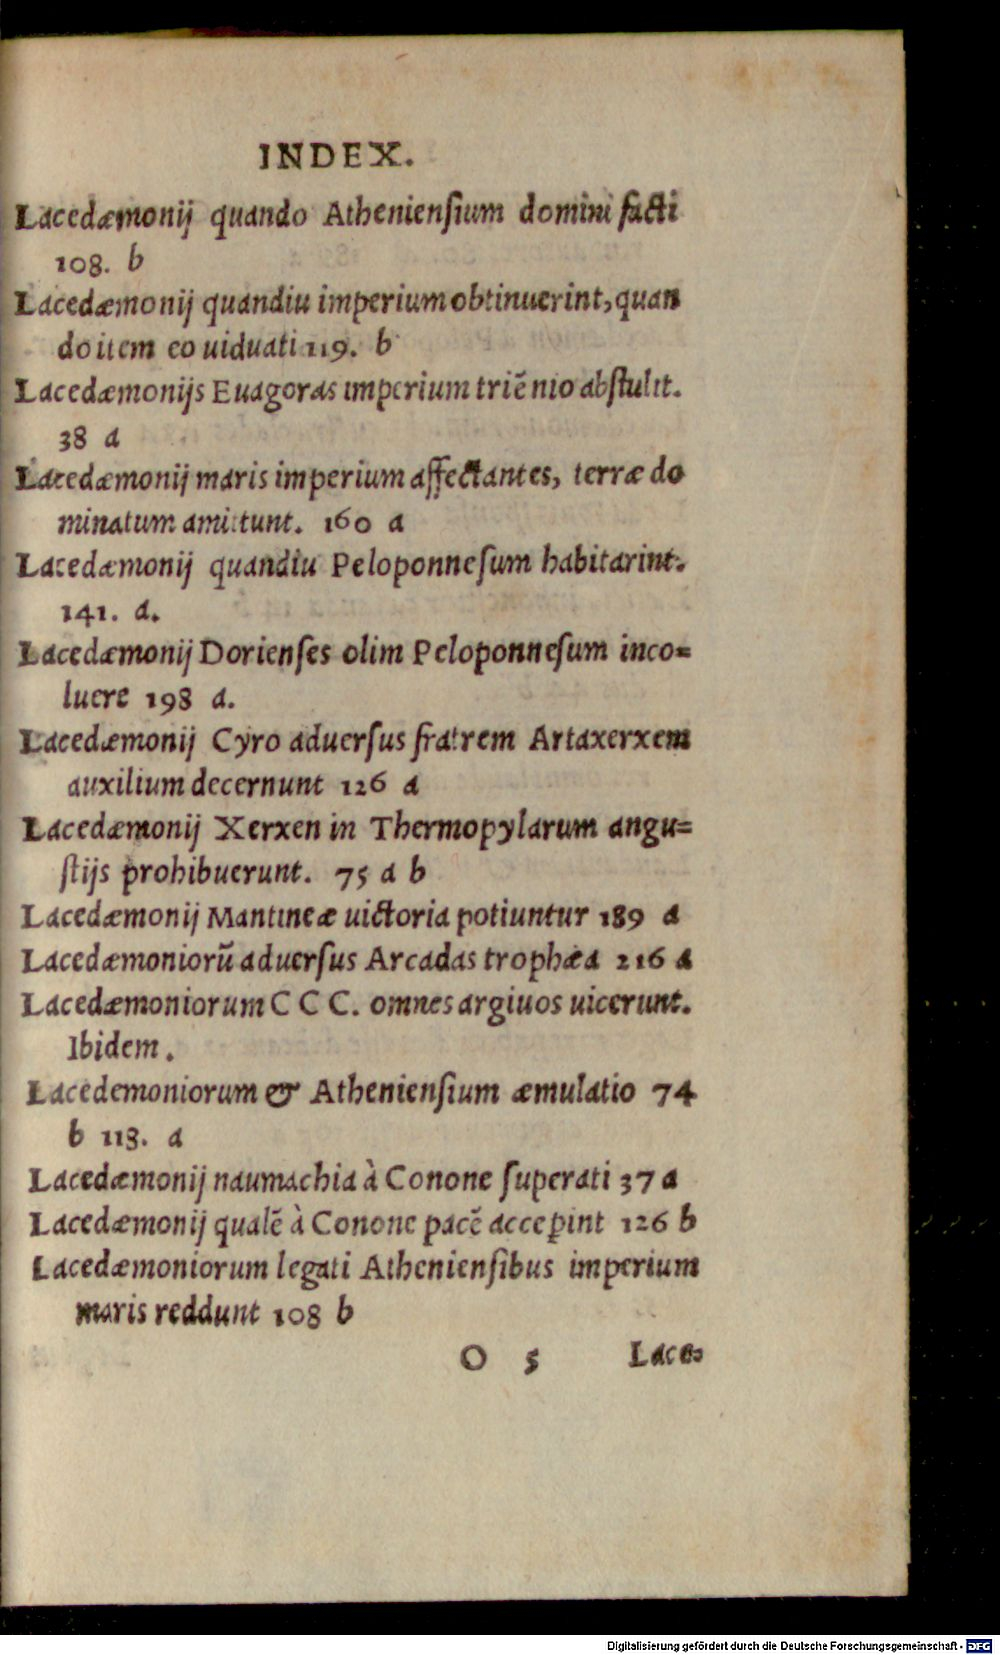 INDEX.
Lacedæmonij quando Athenienſium domini facti
108. b
Lacedæmonij quandiu imperium obtinuerint, quan
do item eo uiduati 119. b
Lacedæmonijs Euagoras imperium triẽnio abſtulit.
38 a
Lacedæmonij maris imperium affectantes, terræ do
minatum amittunt. 160 a
Lacedæmonij quandiu Peloponneſum habitarint.
141. a.
Lacedæmonij Dorienſes olim Peloponneſum inco=
luere 198 a.
Lacedæmonij Cyro aduerſus fratrem Artaxerxem
auxilium decernunt 126 a
Lacedæmonij Xerxen in Thermopylarum angu=
ſtijs prohibuerunt. 75 a b
Lacedæmonij Mantineæ uictoria potiuntur 189 a
Lacedæmoniorũ aduerſus Arcadas trophæa 216 a
Lacedæmoniorum C C C. omnes argiuos uicerunt.
Ibidem.
Lacedemoniorum & Athenienſium æmulatio 74
b 113. a
Lacedæmonij naumachia à Conone ſuperati 37 a
Lacedæmonij qualẽ à Conone pacẽ acceꝑint 126 b
Lacedæmoniorum legati Athenienſibus imperium
maris reddunt 108 b
O 5 Lace=
Digitalisierung gefördert durch die Deutsche Forschungsgemeinschaft - DFG